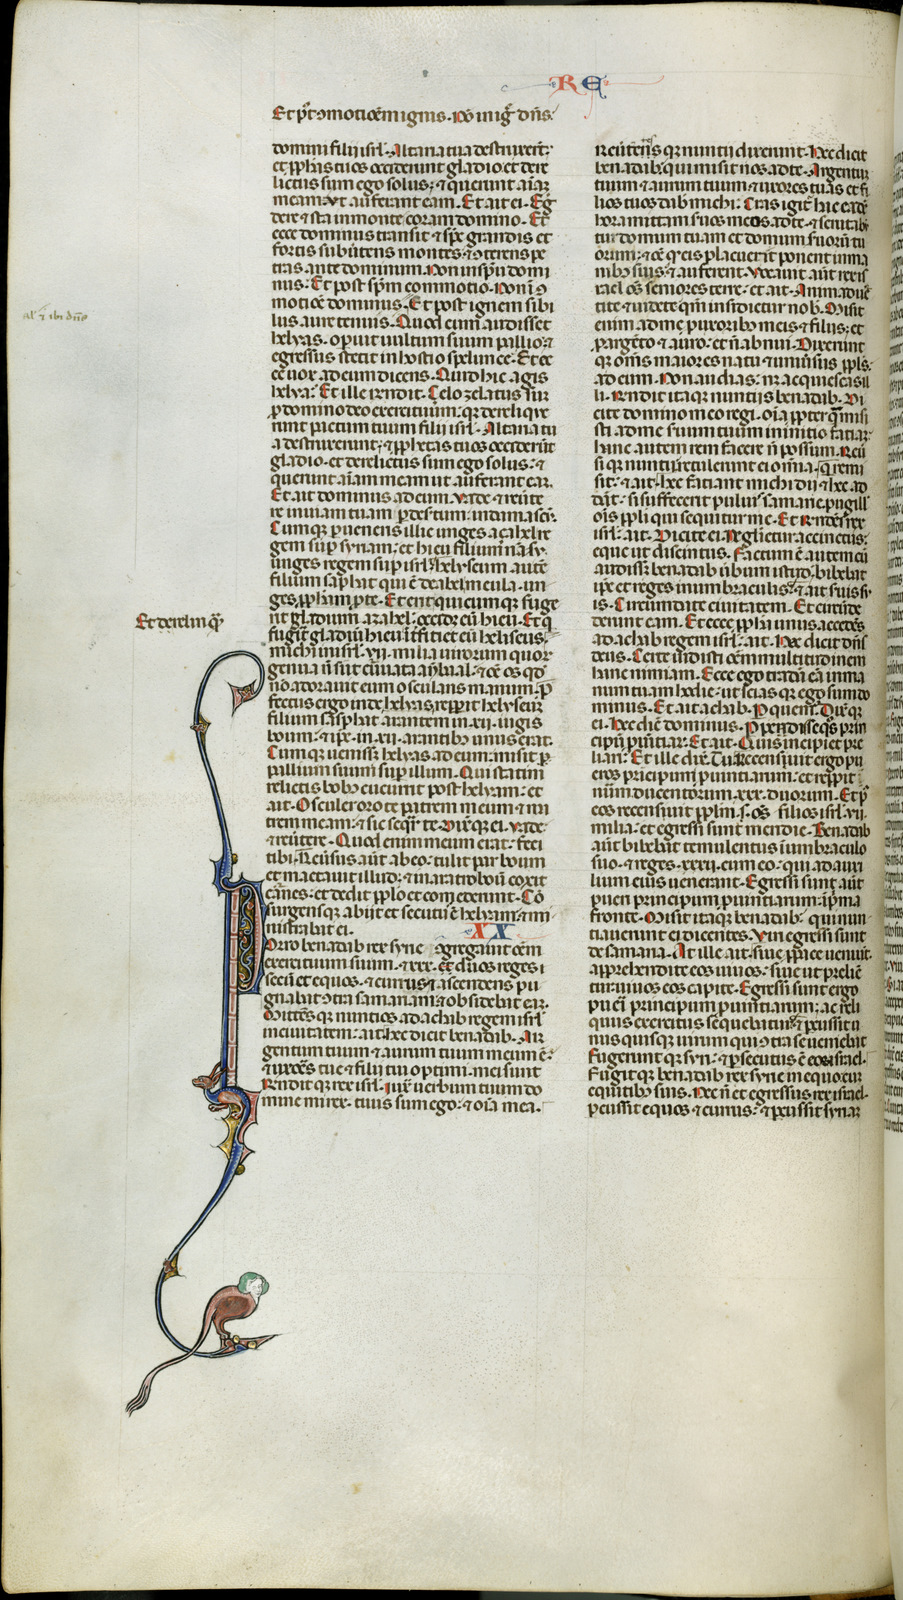 RE
Et pꝰ ꝯmotiōem ignis. Nō in igē dn̄s.
domini filii isrl̄. Altaria tua destruxerūt
et ꝓphīas tuos occiderunt gladio. et dere
lictus sum ego solus: & querunt aīam
meam: ut auferant eam. Et ait ei. Eg
dere & sta in monte coram domino. Et
ecce dominus transit. & sp̄c grandis et
fortis subūtens montes. & ꝯterens pe
tras ante dominum. Non in sp̄u domi
nus. Et post sp̄m commotio. Non in ꝯ
motiōe dominus. Et post ignem sibi
lus aure tenuis. Quod cum audisset
helyas. operuit uultum suum pallio: &
egressus stetit in hostio spelunce. Et ec
ce uox ad eum dicens. Quid hic agis
helya: Et ille rn̄dit. Celo zelatus sum
ꝓ domino deo exercituum: quia dereliqe
runt pactum tuum filii isrl̄. Altaria tu
a destruxerunt: & ꝓphetas tuos occiderūt
gladio. et derelictus sum ego solus: &
querunt aīam meam ut auferant eam.
Et ait dominus ad eum. Vade & reūte
re in uiam tuam per desertum. in damascū.
Cumqꝫ perueneris illuc unges azahel re
gem super syriam: et hieu filium namsy
unges regem sup isrl̄. helyseum autē
filium saphat qui ē de abelmeula. un
ges ꝓphetam ꝓ te. Et erit quicumqꝫ fuge
rit gladium azahel. occidet eū hieu. Et q
fugīt gladiū hieu. īterficiet eū heliseus.
Et derelinqā
michi in isrl̄. vii. milia uirorum quorum
genua nō sunt curuata an̄ baal. & oē os qd̄
nō adorauit eum osculans manum. Pro
fectus ergo inde helyas. repperit helyseum
filium saphat arantem in xii. iugis
boum. & ipse in. xii. arantibus unus erat.
Cumqꝫ uenisset helyas ad eum: misit
pallium suum sup illum. Qui statim
relictis bobus cucurrit post helyam: et
ait. Osculer oro te patrem meum & ma
trem meam: & sic sequar te. Dixitqꝫ ei. Vade
& reūtere. Quod enim meum erat: feci
tibi. Reūsus aūt ab eo: tulit par boum
et mactauit illud: & in aratro boū coxit
carnes: et dedit pplo et comederunt. Cō
surgensqꝫ abiit et secutus ē helyam. & mi
nistrabat ei.
XX
Porro benadab rex syrie ꝯgregauit oēm
exercitum suum. & xxx. et duos reges
secū et equos. & currus: & ascendens pu
gnabat ꝯtra samariam: & obsidebat eam.
Mittēsqꝫ nuntios ad achab regem isrl̄
in ciuitatem: ait. Hec dicit benadab. Ar
gentum tuum & aurum tuum meum ē:
& uxores tue & filii tui optimi. mei sunt.
Rn̄ditqꝫ rex isrl̄. Iuxͣ uerbum tuum do
mine mi rex. tuus sum ego: & oīa mea.
Reūtentesqꝫ nuntii dixerunt. Hec dicit
benadab. qui misit nos ad te. Argentum
tuum & aurum tuum & uxores tuas et fi
lios tuos dabis michi: Cras igit̄ hac eadē
hora mittam suos meos ad te. & scrutabū
tur domum tuam et domum suorū tu
orum: & oē qd eis placuerit ponent in ma
nibus suis & auferent. Vocauit aūt rex is
rael os̄ seniores terre: et ait. Animaduer
tite & uidete qm̄ insidietur nob̄. Misit
enim ad me ꝓ uxoribꝫ meis & filiis: et
ꝓ argēto & auro: et nō abnui. Dixerunt
qꝫ om̄s maiores natu & uniūsus ppl̄s
ad eum. Non audias: nꝫ acquiescas il
li. Rn̄dit itaqꝫ nuntiis benadab. Di
cite domino meo regi. oīa ppter que misi
sti ad me suum tuum in initio faciam:
hanc autem rem facere nō possum. Reū
siqꝫ nuntii retulerunt ei om̄a. Qui remi
sit: & ait. Hec faciant michi dii & hec ad
dāt. si suffecerit puluis samarie pugill
ōis ppli qui sequitur me. Et rn̄dēs rex
isrl̄: ait. Dicite ei. Ne glietur accinctus:
eque ut discinctus. Factum ē autem cū
audisset benadab ūbum istud. bibebat
ipe et reges in umbraculis: & ait suis s̄u
is. Circumdate ciuitatem. Et circūde
derunt eam. Et ecce ꝓph̄a unus accedēs
ad achab regem isrl̄: ait. Hec dicit dn̄s
deus. Certe uidisti oēm multitudinem
hanc nimiam. Ecce ego tradā eā in ma
num tuam hodie: ut scias qꝫ ego sum do
minus. Et ait achab. Per quem: Dixitqꝫ
ei. Hec dicit dominus. Per pedisseqos prin
cipū puintiarum. Et ait. Quis incipiet pre
liari: Et ille dixit. Tu. Recensuit ergo pu
eros principum puintiarum: et repperit
nūm ducentorum. xxx. duorum. Et pꝰ
eos recensuit pplm̄. os̄ filios isrl̄. vii
milia: et egressi sunt meridie. Benadab
aūt bibebat temulentus ī umbraculo
suo. & reges. xxxii. cum eo: qui ad auxi
lium eius uenerant. Egressi sunt aūt
pueri principum puintiarum: ī prima
fronte. Misit itaqꝫ benadab: qui nun
tiauerunt ei dicentes. Viri egressi sunt
de samaria. At ille ait. siue p pace ueniūt.
apprehendite eos uiuos: siue ut prelie
tur: uiuos eos capite. Egressi sunt ergo
pueri principum puintiarum: ac reli
quus exercitus sequebatur. & pcussit u
nus quisqꝫ uirum qui ꝯtra se ueniebat
Fugeruntqꝫ syri: & psecutus ē eos israel.
Fugit qꝫ benadab rex syrie in equo cum
equitibꝫ suis. Nec n̄ et egressus rex israel.
percussit equos & currus: & percussit syriam
al' ⁊ ibi dn̄s